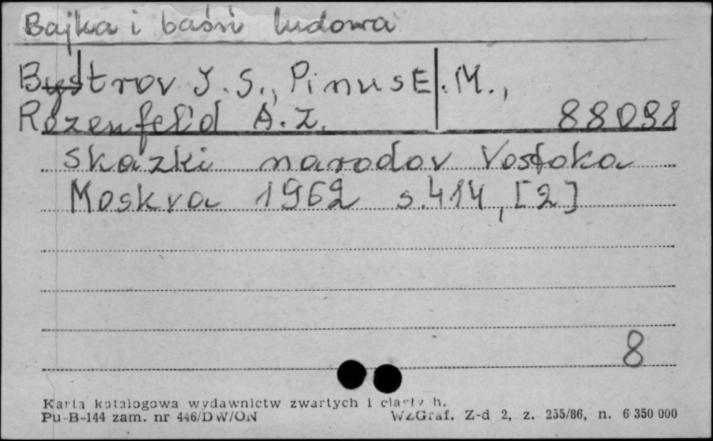 Bajka i baśń ludowa
Bystrov J. S., Pinus E. M.,
Rozenfel'd A. Z. 88098
Skazki narodov Vostoka
Moskva 1962 s. 414, [2]
8
Karta katalogowa wydawnictw zwartych i
Pu-B-144 zam. nr 446/DW/ON WZGraf. Z-d 2, z. 255/86, n. 6 350 000